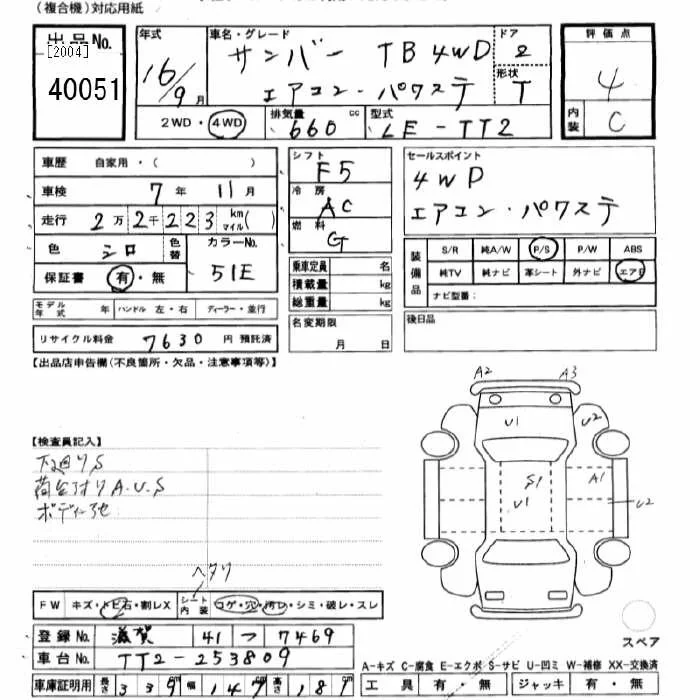 (複合機)対応用紙
出品No. [2004] 40051
年式 16/9月
車名・グレード サンバー TB 4WD エアコン・パワステ
ドア 2
形状 T
評価点 4
内装 C
2WD・4WD
排気量 660 cc
型式 LE-TT2
車歴 自家用・( )
車検 7年 11月
走行 2万2千223 km マイル( )
色 シロ 色替
カラーNo. 51E
保証書 有・無
モデル年式 年 ハンドル 左・右 ディーラー・並行
リサイクル料金 7630 円 預託済
シフト F5
冷房 AC
燃料 G
乗車定員 名
積載量 kg
総重量 kg
名変期限 月 日
セールスポイント
4WD
エアコン・パワステ
装備品
S/R 純A/W P/S P/W ABS
純TV 純ナビ 革シート 外ナビ エアB
ナビ型番:
後日品
【出品店申告欄(不良箇所・欠品・注意事項等)】
【検査員記入】
下廻りS
荷台対りA.U.S
ボディ
A2 A3
U1 U2
S1 A1
U1 U2
スペア
ヘタリ
FW キズ・トビ石・割レX シート内装 コゲ・穴・汚レ・シミ・破レ・スレ
登録No. 滋賀 41 つ 7469
車台No. TT2-253809
車庫証明用 長さ 339 幅 147 高さ 187
A-キズ C-腐食 E-エクボ S-サビ U-凹ミ W-補修 XX-交換済
工具 有・無 ジャッキ 有・無